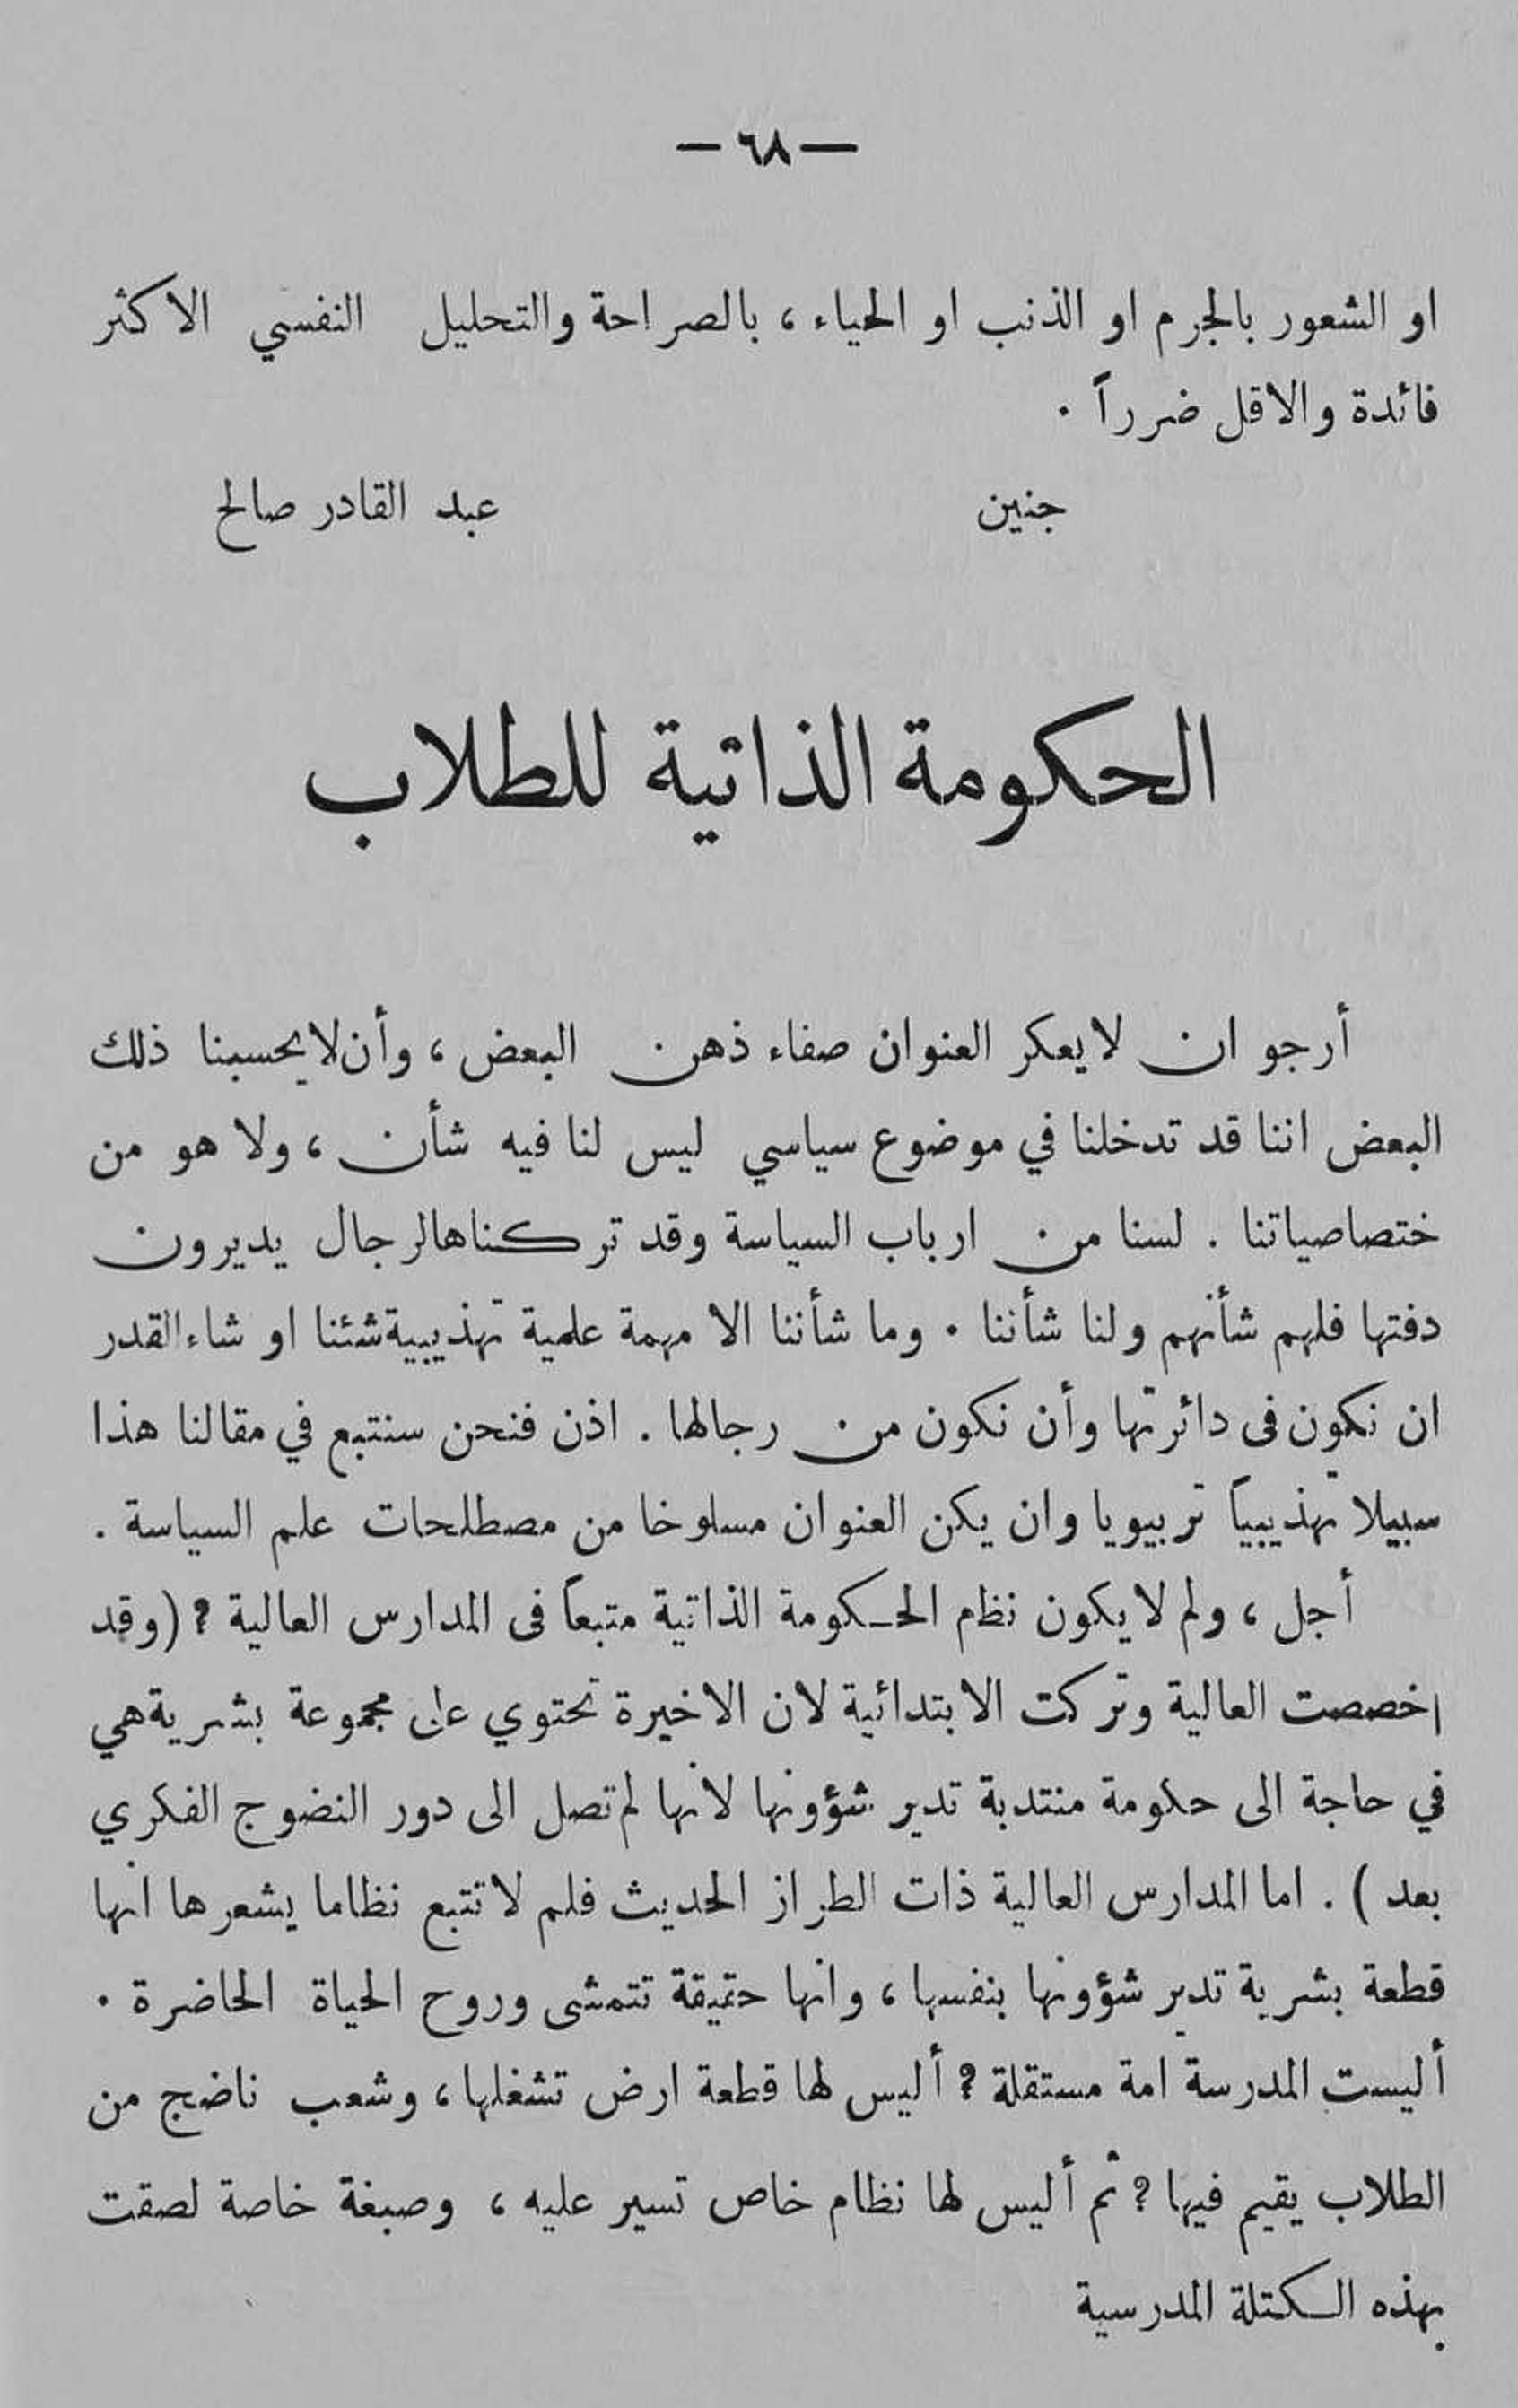 — ٦٨ —
او الشعور بالجرم او الذنب او الحياء ، بالصراحة والتحليل النفسي الاكثر
فائدة والاقل ضرراً .
جنين عبد القادر صالح
الحكومة الذاتية للطلاب
أرجو ان لا يعكر العنوان صفاء ذهن البعض ، وأن لا يحسبنا ذلك
البعض اننا قد تدخلنا في موضوع سياسي ليس لنا فيه شأن ، ولا هو من
ختصاصياتنا . لسنا من ارباب السياسة وقد تركناها لرجال يديرون
دفتها فلهم شأنهم ولنا شأننا . وما شأننا الا مهمة علمية تهذيبية شئنا او شاء القدر
ان نكون فى دائرتها وأن نكون من رجالها . اذن فنحن سنتبع في مقالنا هذا
سبيلا تهذيبياً تربيويا وان يكن العنوان مسلوخا من مصطلحات علم السياسة .
أجل ، ولم لا يكون نظم الحكومة الذاتية متبعاً فى المدارس العالية ؟ (وقد
اخصصت العالية وتركت الابتدائية لان الاخيرة تحتوي على مجموعة بشرية هي
في حاجة الى حكومة منتدبة تدير شؤونها لانها لم تصل الى دور النضوج الفكري
بعد ) . اما المدارس العالية ذات الطراز الحديث فلم لا تتبع نظاما يشعرها انها
قطعة بشرية تدير شؤونها بنفسها ، وانها حقيقة تتمشى وروح الحياة الحاضرة .
أليست المدرسة امة مستقلة ؟ أليس لها قطعة ارض تشغلها ، وشعب ناضج من
الطلاب يقيم فيها ؟ ثم أليس لها نظام خاص تسير عليه ، وصبغة خاصة لصقت
بهذه الكتلة المدرسية